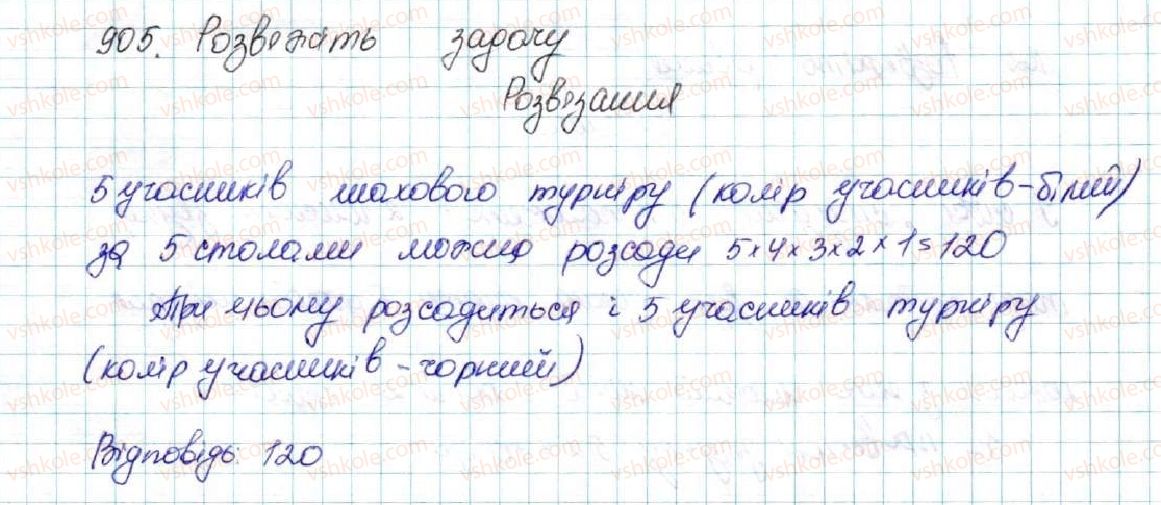 905. Розвяжіть задачу
Розвязання
5 учасників шахового турніру (колір учасників - білий)
за 5 столами можна розсади 5×4×3×2×1=120
При цьому розсадиться і 5 учасників турніру
(колір учасників - чорний)
Відповідь: 120